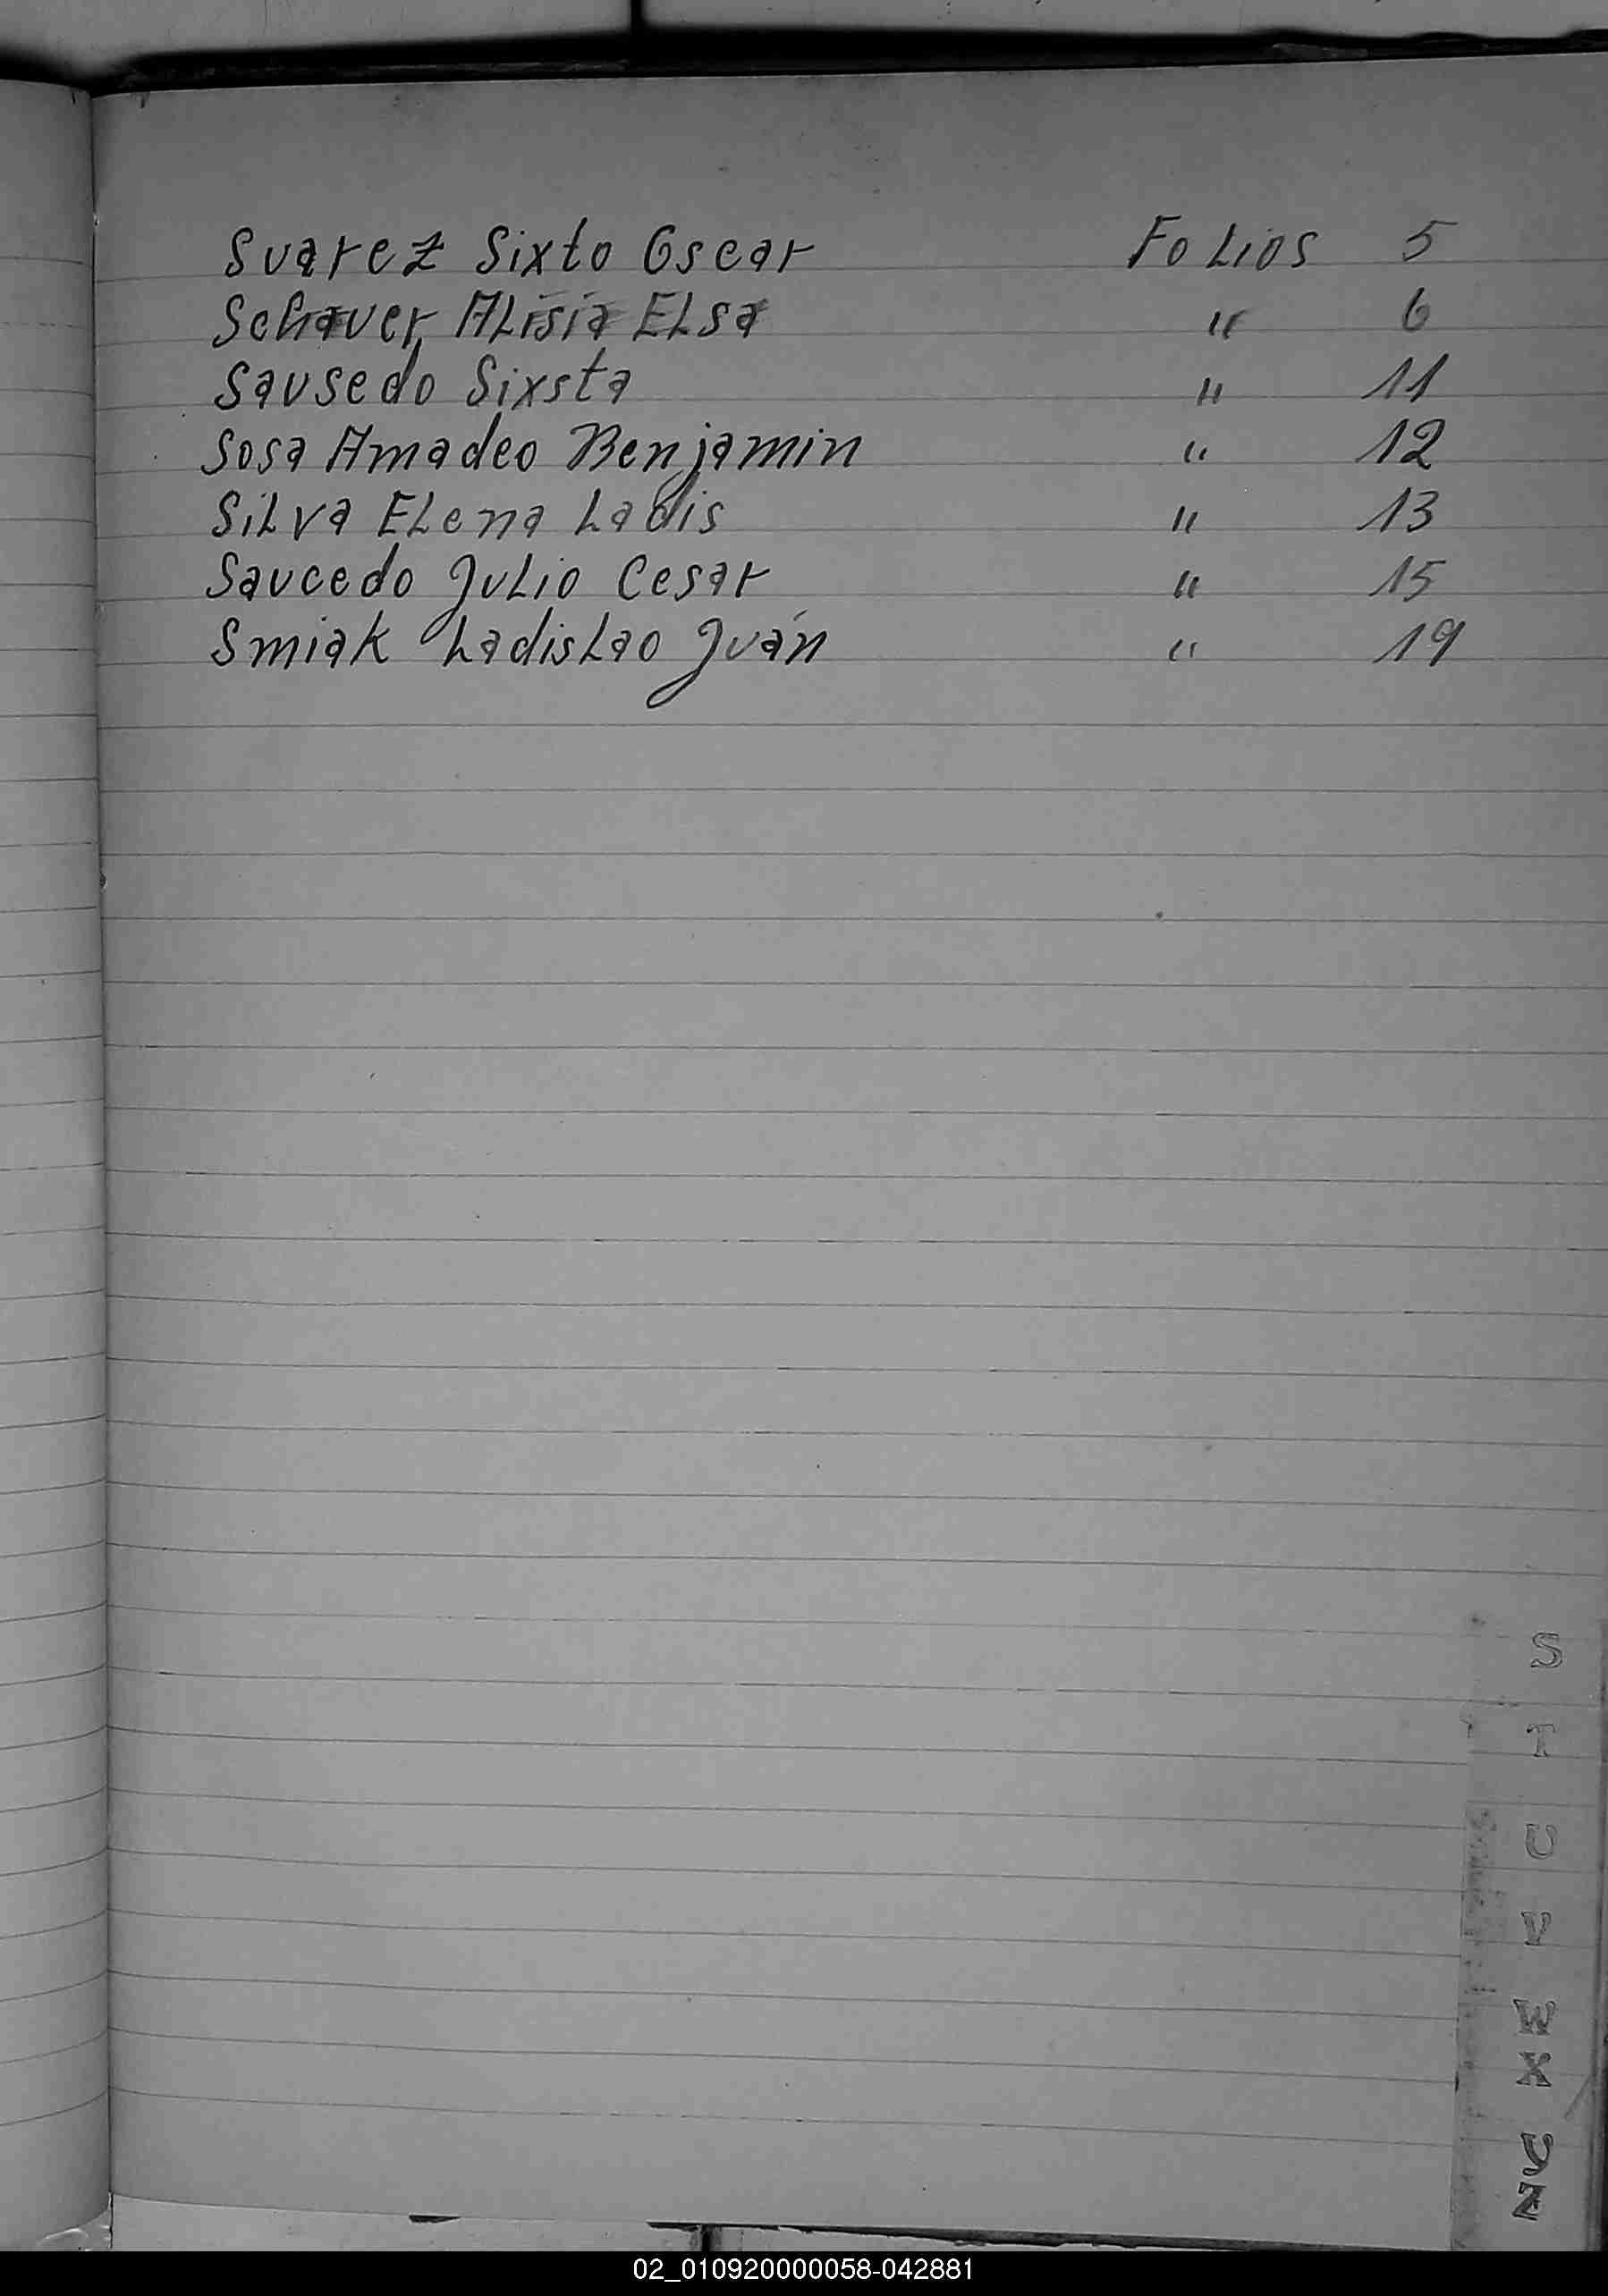 Suarez Sixto Oscar Folios 5
Schaver Alisia Elsa " 6
Sausedo Sixsta " 11
Sosa Amadeo Benjamin " 12
Silva Elena Ladis " 13
Saucedo Julio Cesar " 15
Smiak Ladislao Juán " 19
S
T
U
V
W
X
Y
Z
02_010920000058-042881